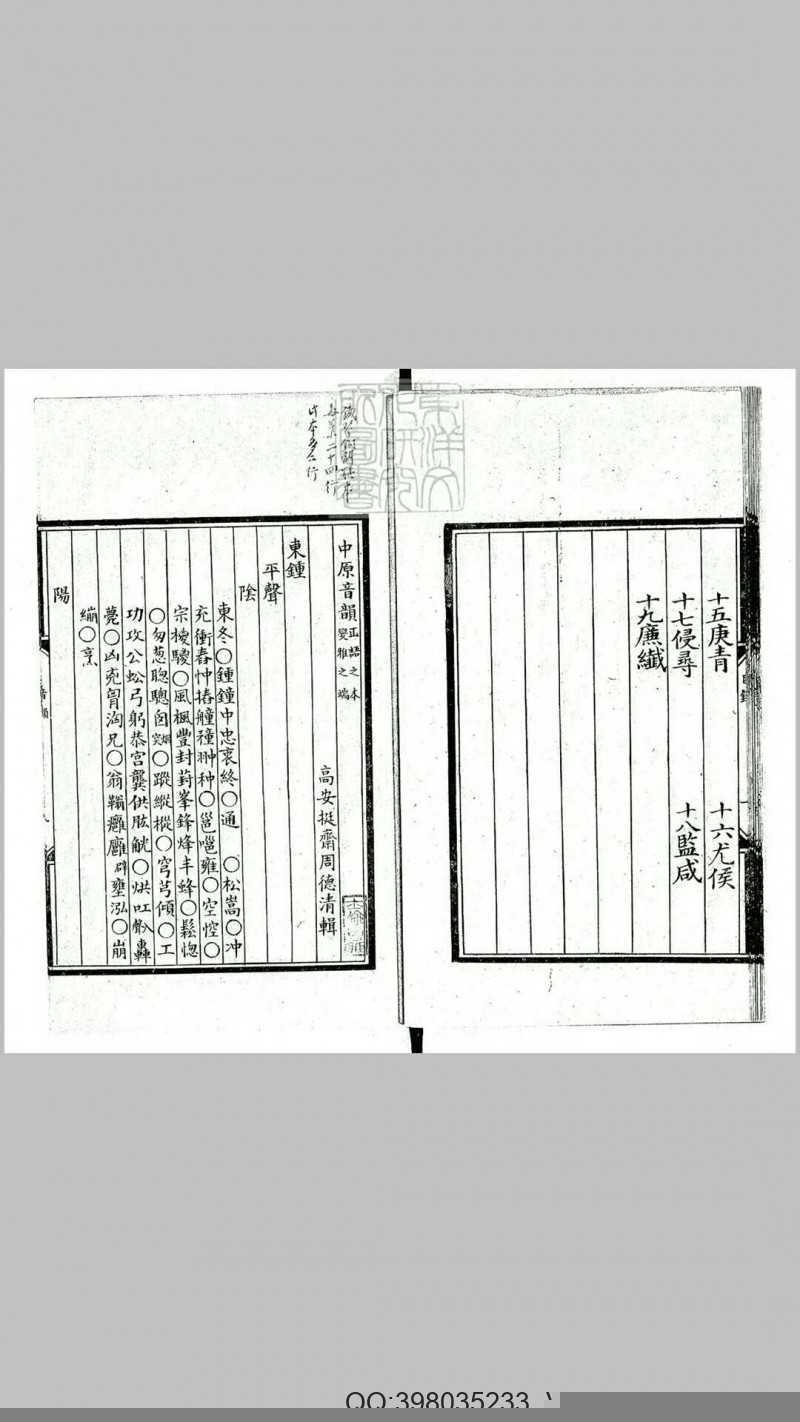 十五庚青 十六尤侯
十七侵尋 十八監咸
十九廉纖
中原音韻 正語之本 變雅之端
高安挺齋周德清輯
東鍾
平聲
陰
東冬○鍾鐘中忠衷終○通 ○松嵩○冲
充衝舂忡摏艟穜翀种○邕噰雍○空悾○
宗椶騣○風楓豐封葑峯鋒烽丰蜂○鬆惚
○匆葱聰驄囪○蹤縱樅○穹芎傾○工
功攻公蚣弓躬恭宫龔供肱觥○烘吅轟
薨○凶兇胷洶兄○翁癰壅泓○崩
繃○烹
陽
QQ:398035233